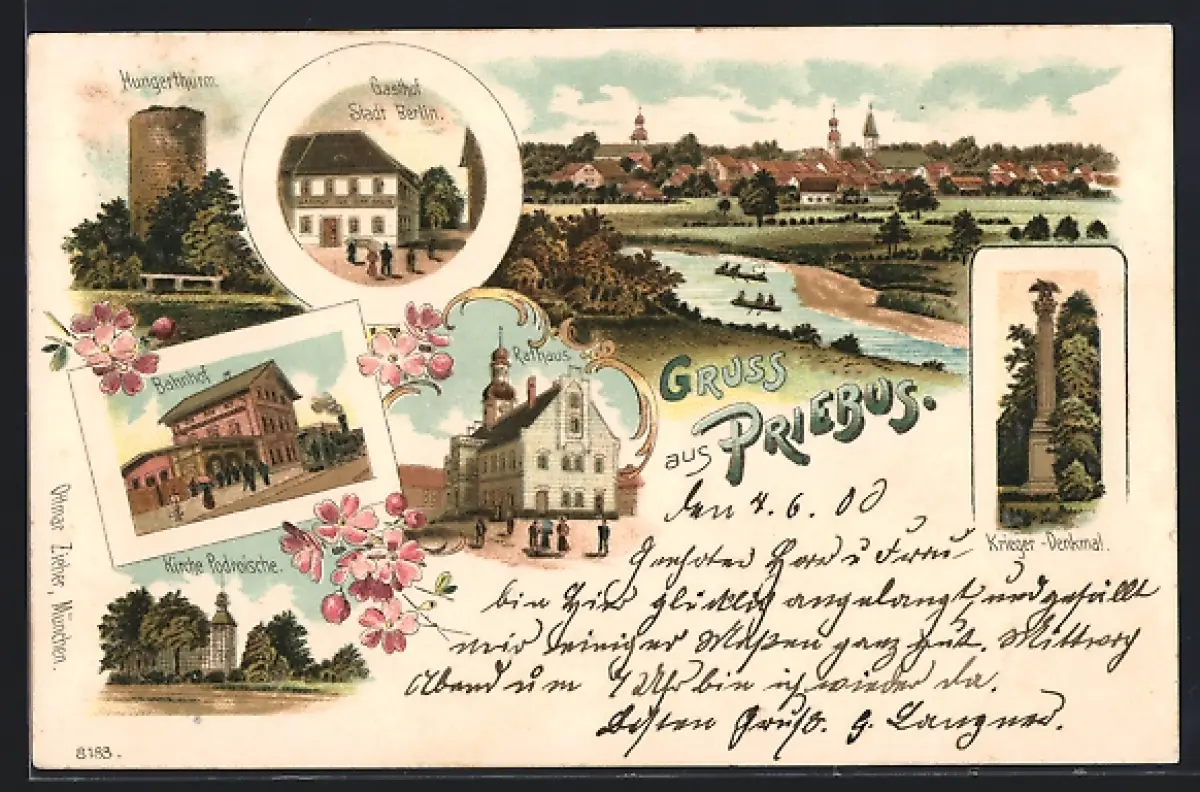 Hungerthurm.
Gasthof
Stadt Berlin.
Bahnhof
Rathaus
GRUSS
aus PRIEBUS.
Krieger-Denkmal.
Kirche Podroische.
Ottmar Zieher, München.
8183.
den 4. 6. 00
Geehrter Herr u Frau
bin hier glücklich angelangt, und gefällt
mir einiger Maßen ganz gut. Mittwoch
Abend um 9 Uhr bin ich wieder da.
Besten Gruß. G. Langner.